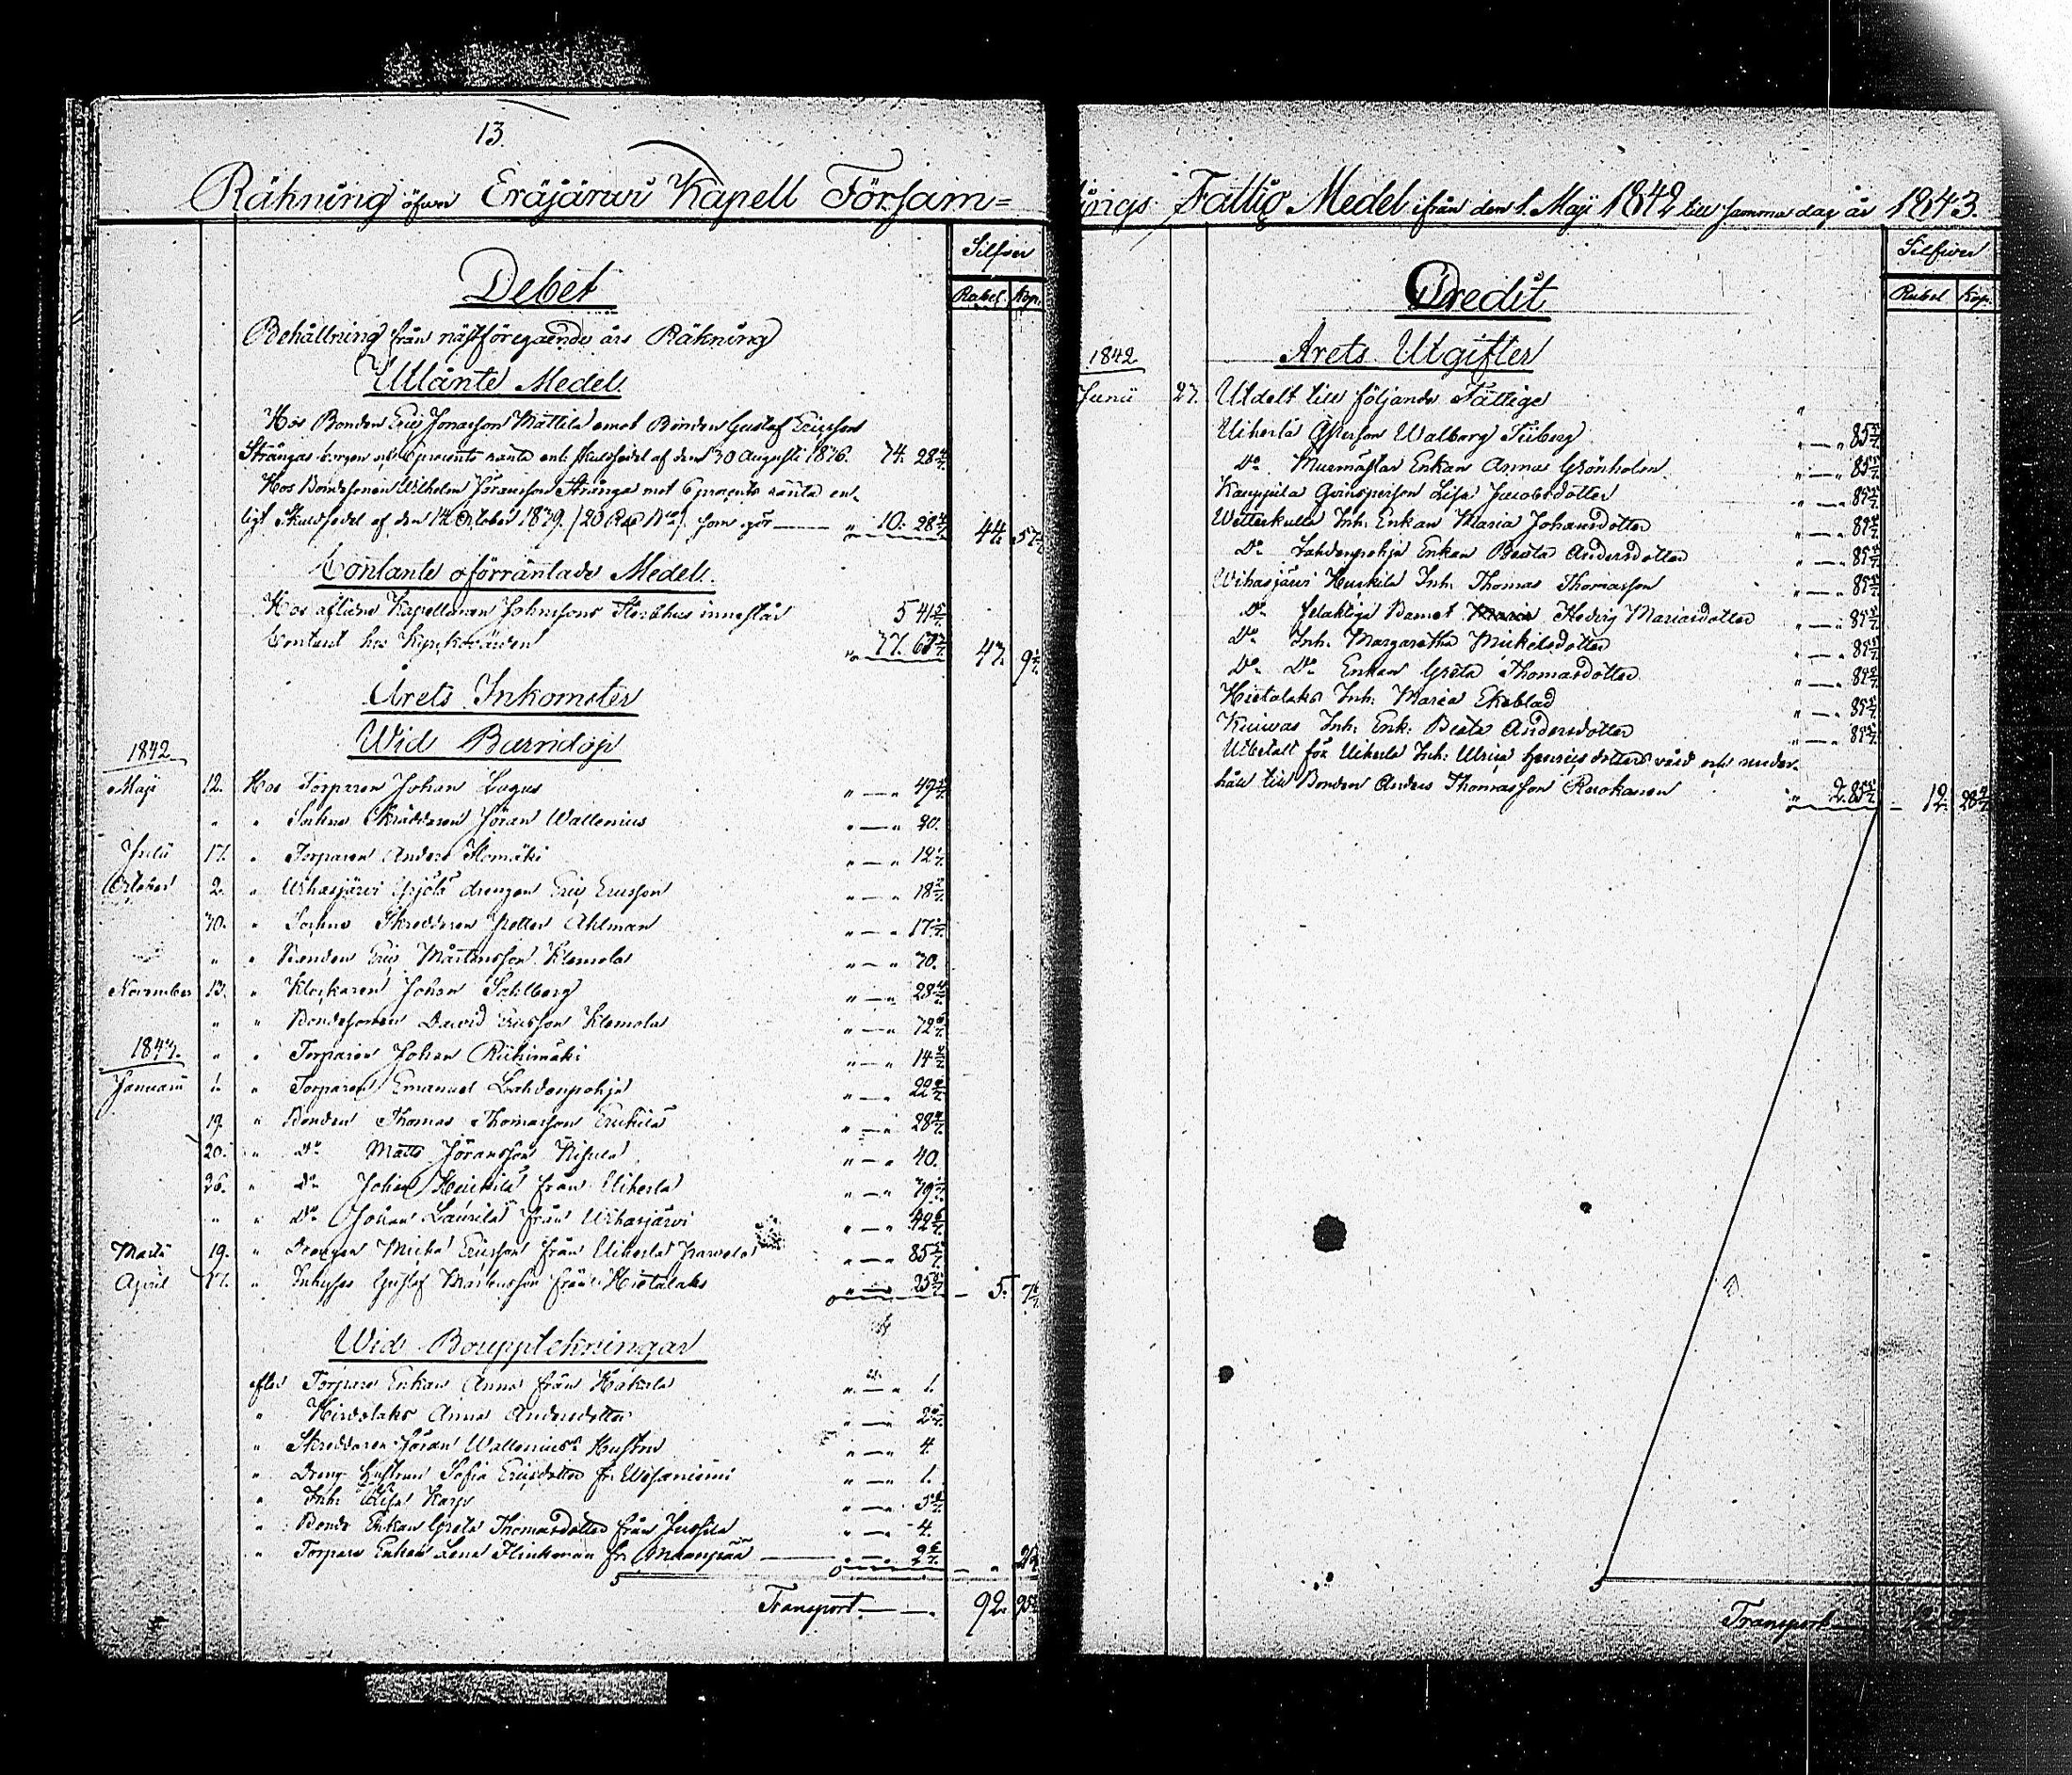 13.
Räkning öfver Eräjärvi Kapell Försam=
Silfver
Debet
Rubel. Kop.
Behållning från nästföregående års Räkning
Utlånte Medel.
Hos Bonden Eric Jonasson Mattila emot Bonden Gustaf Ericsson
Strångas borgen och 6 procents ränta enl. skuldsedel af den 30 Augusti 1836. 34. 28 4/7
Hos Bondesonen Wilhelm Jöransson Strånga mot 6 procents ränta en-
ligt Skuldsedel af den 14 October 1839. som gör — " 10. 28 4/7 44. 57 1/7
Contante oförräntade Medel.
Hos aflidne Kapellanen Johnssons Sterbhus innestår 5 41 5/7
Contant hos Kyrkovärden 47. 9 4/7
Årets Inkomster
Wid Barndop
1842
Maji 12. Hos Torparen Johan Lagus " — " 49 5/7
" " Sachno Skräddaren Jöran Wallenius " — " 20.
Julii 17. " Torparen Anders Ilomäki " — " 12 6/7
October 2. " Wihasjärvi Yrjölä drengen Eric Ericsson " — " 18 4/7
30. " Skreddaren Petter Ahlman " — " 17 1/7
" " Bonden Eric Mårtensson Klemola " — " 30.
November 13. " Klockaren Johan Sahlberg " — " 28 4/7
" " Bondesonen David Ericsson Klemola " — " 32 6/7
1843. " " Torparen Johan Riihimäki " — " 14 2/7
Januarii 1. " Torparen Emanuel Lahdenpohja " — " 22 6/7
19. " Bonden Thomas Thomasson Erickilä " — " 28 4/7
20. " Do Matts Jöransson " — " 40.
26. " Do Johan Heickilä från Uiherla " — " 39
" " Do Johan Laurila från Wihasjärvi " — " 42 6/7
Martii 19. " Drengen Michel Ericsson från Uiherla " — " 85 5/7
April 17. " Inhyses Gustaf Mårtensson från Hietalaks " — " 25 5/7 — 5. 7 1/7
Wid Bouppteckningar
efter Torpare Enkan Anna från Hakerla " — " 1.
" Hirdolaks Anna Andersdotter " — " 2 6/7
" Skreddaren Jöran Wallenius's Hustru " — " 4.
" Dreng hustrun Sofia Ericsdotter fr. " — " 1.
" Inh: Lisa Karp " — " 5
" Bonde Enkan Greta Thomasdotter från Jussila " — " 4.
" Torpare Enkan Lena Flinkman fr. — " — "
Transport — 92. 95
lings Fattig Medel ifrån den 1. Maji 1842 till samma dag år 1843.
Silfver
Credit
Rubel Kop.
Årets Utgifter
1842
Junii 27. Utdelt till följande Fattige
Uiherla Walborg Tiiberg " — " 85 5/7
Do Murmästar Enkan Anna Grönholm " — " 85 5/7
Kauppila Qvinsperson Lisa Jacobsdotter " — " 85 5/7
Wetterkulla Inh: Enkan Maria Johansdotter " — " 85 5/7
Do Lahdenpohja Enkan Beata Andersdotter " — " 85 5/7
Wihasjärvi Heickilä Inh: Thomas Thomasson " — " 85 5/7
Do felaktiga Barnet Maria Hedvig Mariasdotter " — " 85 5/7
Do Inh: Margaretha Mickelsdotter " — " 85 5/7
Do Do Enkan Greta Thomasdotter " — " 85 5/7
Hietalaks Inh: Maria Ekeblad " — " 85 5/7
Inh: Enk: Beata Andersdotter " — " 85 5/7
Utbetalt för Uiherla Inh: Ulrica Henricsdotters vård och under-
håll till Bonden Anders Thomasson Ruokanen " 2. 85 5/7 — 12. 28 4/7
Transport —